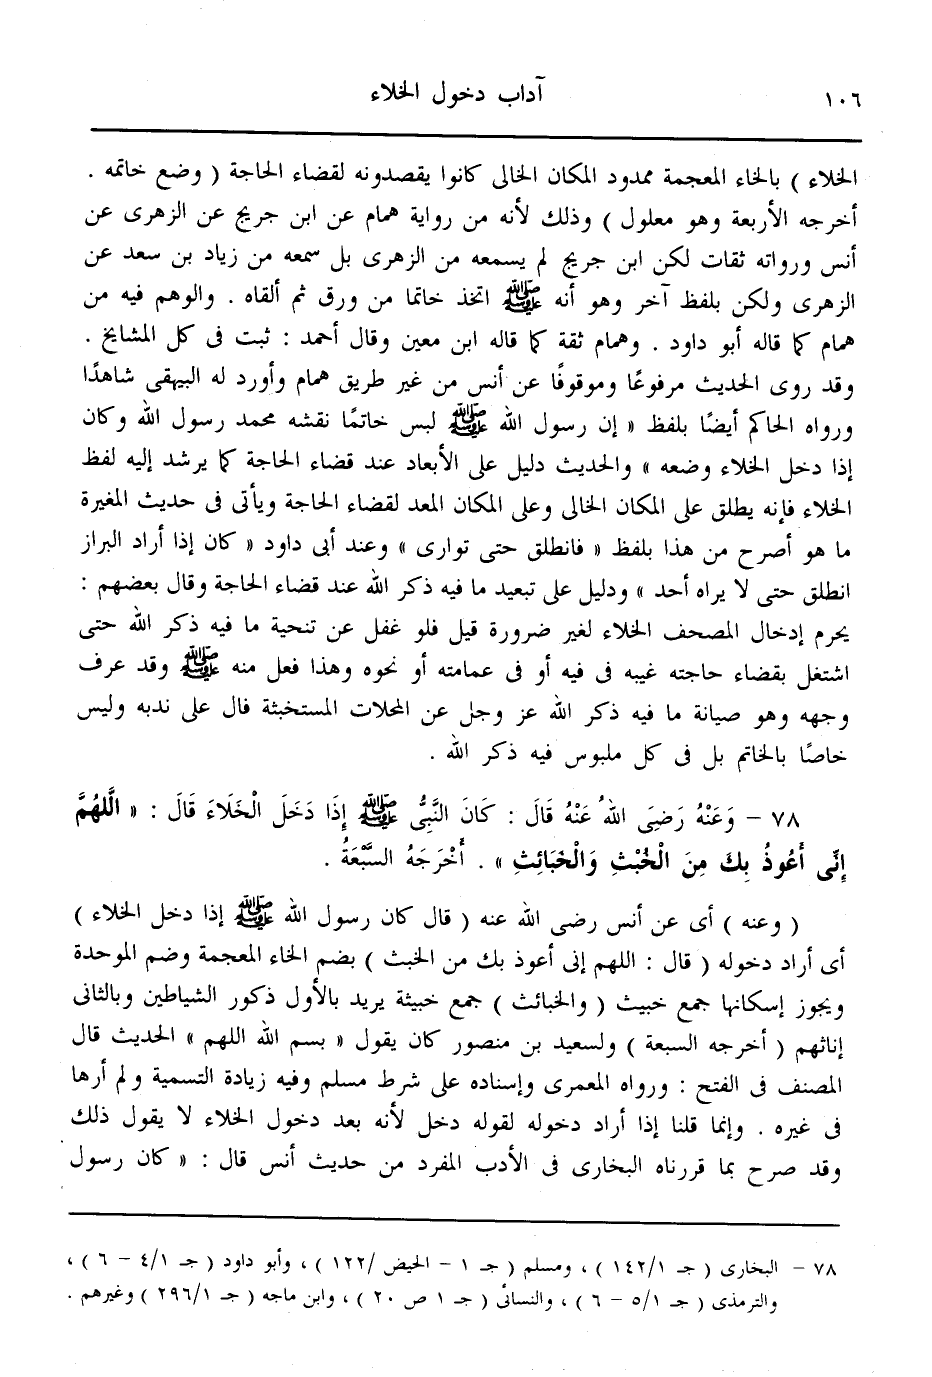 ١٠٦ آداب دخول الخلاء
الخلاء ) بالخاء المعجمة ممدود المكان الخالى كانوا يقصدونه لقضاء الحاجة ( وضع خاتمه .
أخرجه الأربعة وهو معلول ) وذلك لأنه من رواية همام عن ابن جريج عن الزهرى عن
أنس ورواته ثقات لكن ابن جريج لم يسمعه من الزهرى بل سمعه من زياد بن سعد عن
الزهرى ولكن بلفظ آخر وهو أنه ﷺ اتخذ خاتما من ورق ثم ألقاه . والوهم فيه من
همام كما قاله أبو داود . وهمام ثقة كما قاله ابن معين وقال أحمد : ثبت فى كل المشايخ .
وقد روى الحديث مرفوعًا وموقوفًا عن أنس من غير طريق همام وأورد له البيهقى شاهدًا
ورواه الحاكم أيضًا بلفظ « إن رسول الله ﷺ لبس خاتمًا نقشه محمد رسول الله وكان
إذا دخل الخلاء وضعه » والحديث دليل على الأبعاد عند قضاء الحاجة كما يرشد إليه لفظ
الخلاء فإنه يطلق على المكان الخالى وعلى المكان المعد لقضاء الحاجة ويأتى فى حديث المغيرة
ما هو أصرح من هذا بلفظ « فانطلق حتى توارى » وعند أبى داود « كان إذا أراد البراز
انطلق حتى لا يراه أحد » ودليل على تبعيد ما فيه ذكر الله عند قضاء الحاجة وقال بعضهم :
يحرم إدخال المصحف الخلاء لغير ضرورة قيل فلو غفل عن تنحية ما فيه ذكر الله حتى
اشتغل بقضاء حاجته غيبه فى فيه أو فى عمامته أو نحوه وهذا فعل منه ﷺ وقد عرف
وجهه وهو صيانة ما فيه ذكر الله عز وجل عن المحلات المستخبثة فال على ندبه وليس
خاصًا بالخاتم بل فى كل ملبوس فيه ذكر الله .
٧٨ – وَعَنْهُ رَضِىَ اللهُ عَنْهُ قَالَ : كَانَ النَّبِىُّ ﷺ إِذَا دَخَلَ الْخَلَاءَ قَالَ : « اللَّهُمَّ
إِنِّى أَعُوذُ بِكَ مِنَ الْخُبْثِ وَالْخَبَائِثِ » . أَخْرَجَهُ السَّبْعَةُ .
( وعنه ) أى عن أنس رضى الله عنه ( قال كان رسول الله ﷺ إذا دخل الخلاء )
أى أراد دخوله ( قال : اللهم إنى أعوذ بك من الخبث ) بضم الخاء المعجمة وضم الموحدة
ويجوز إسكانها جمع خبيث ( والخبائث ) جمع خبيثة يريد بالأول ذكور الشياطين وبالثانى
إناثهم ( أخرجه السبعة ) ولسعيد بن منصور كان يقول « بسم الله اللهم » الحديث قال
المصنف فى الفتح : ورواه المعمرى وإسناده على شرط مسلم وفيه زيادة التسمية ولم أرها
فى غيره . وإنما قلنا إذا أراد دخوله لقوله دخل لأنه بعد دخول الخلاء لا يقول ذلك
وقد صرح بما قررناه البخارى فى الأدب المفرد من حديث أنس قال : « كان رسول
٧٨ – البخارى ( جـ ١٤٢/١ ) ، ومسلم ( جـ ١ – الحيض /١٢٢ ) ، وأبو داود ( جـ ٤/١ – ٦ ) ،
والترمذى ( جـ ٥/١ – ٦ ) ، والنسائى ( جـ ١ ص ٢٠ ) ، وابن ماجه ( جـ ٢٩٦/١ ) وغيرهم .